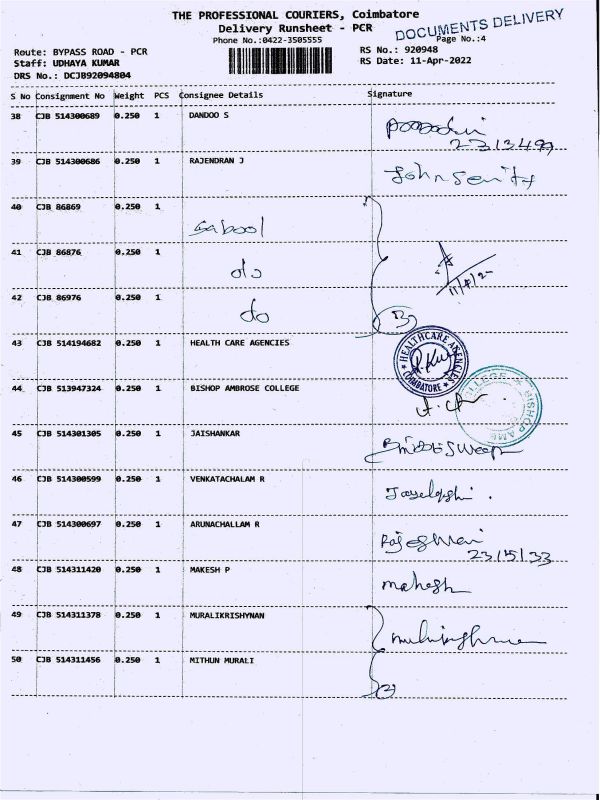 THE PROFESSIONAL COURIERS, Coimbatore
Delivery Runsheet - PCR
DOCUMENTS DELIVERY
Phone No.:0422-3505555
Page No.:4
Route: BYPASS ROAD - PCR
RS No.: 920948
Staff: UDHAYA KUMAR
RS Date: 11-Apr-2022
DRS No.: DCJB92094804
S No Consignment No Weight PCS Consignee Details Signature
38 CJB 514300689 0.250 1 DANDOO S
39 CJB 514300686 0.250 1 RAJENDRAN J
40 CJB 86869 0.250 1
41 CJB 86876 0.250 1 do
42 CJB 86976 0.250 1 do
3
43 CJB 514194682 0.250 1 HEALTH CARE AGENCIES
HEALTHCARE AGENCIES COIMBATORE
44 CJB 513947324 0.250 1 BISHOP AMBROSE COLLEGE
45 CJB 514301305 0.250 1 JAISHANKAR
46 CJB 514300599 0.250 1 VENKATACHALAM R
47 CJB 514300697 0.250 1 ARUNACHALLAM R
48 CJB 514311420 0.250 1 MAKESH P mahesh
49 CJB 514311378 0.250 1 MURALIKRISHYNAN
50 CJB 514311456 0.250 1 MITHUN MURALI
2